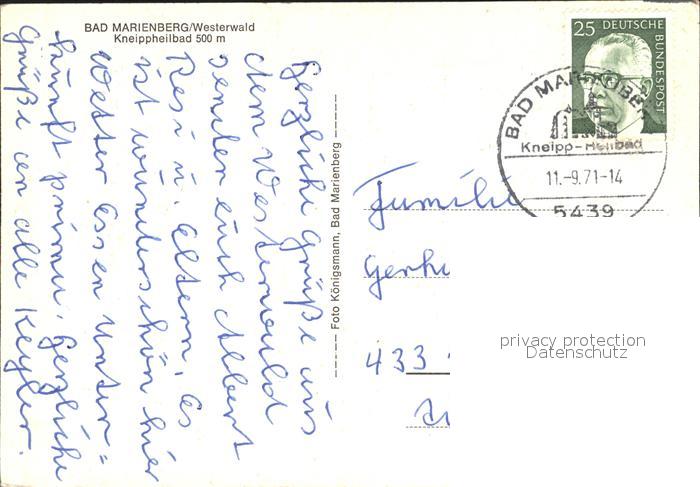 BAD MARIENBERG/Westerwald
Kneippheilbad 500 m
Herzliche Grüße aus
dem Westerwald
senden euch Albert
Resi u. Eltern, es
ist wunderschön hier
Wetter Essen Unter=
kunft prima. Herzliche
Grüße an alle
Foto Königsmann, Bad Marienberg
25 DEUTSCHE
BUNDESPOST
BAD MARIENBERG
Kneipp-Heilbad
11.-9.71-14
5439
Familie
433
privacy protection
Datenschutz